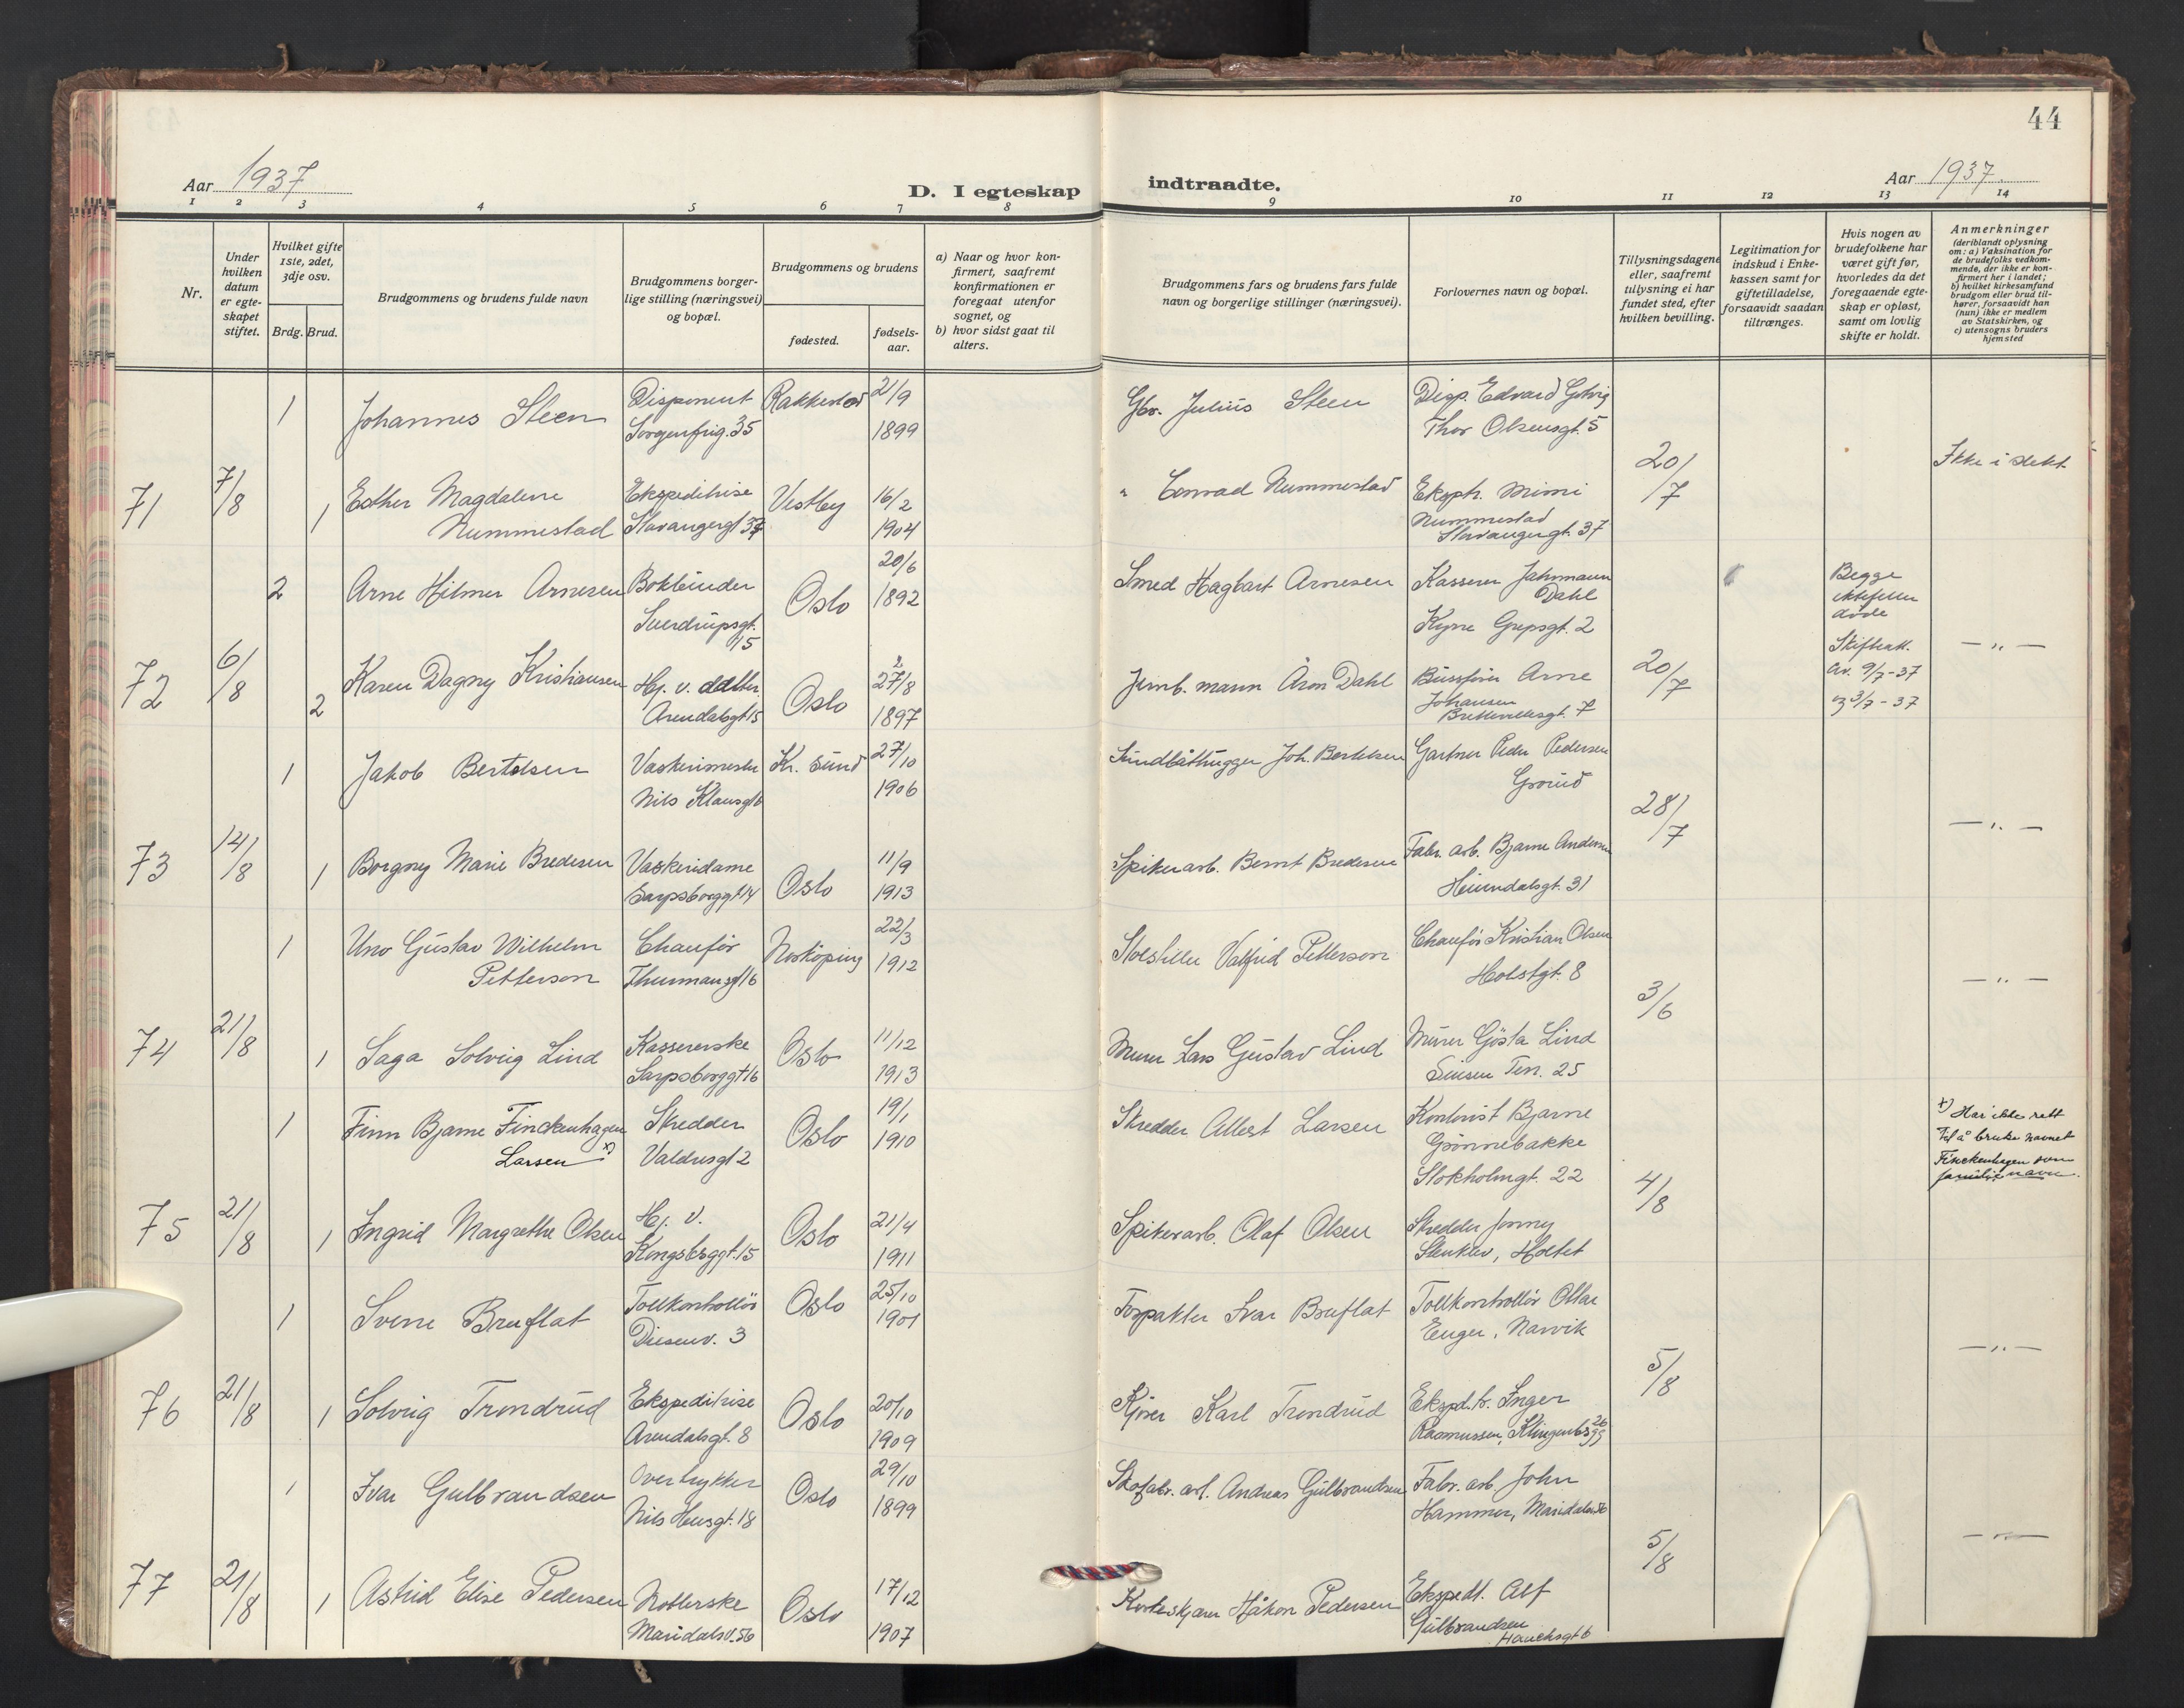 44
Aar 1937
D. I egteskap indtraadte.
Aar 1937.
1 2 3 4 5 6 7 8 9 10 11 12 13 14
Nr.
Under hvilken datum er egte-skapet stiftet.
Hvilket gifte 1ste, 2det, 3dje osv.
Brdg. Brud.
Brudgommens og brudens fulde navn
Brudgommens borger-lige stilling (næringsvei) og bopæl.
Brudgommens og brudens
fødested.
fødsels-aar.
a) Naar og hvor kon-firmert, saafremt konfirmationen er foregaat utenfor sognet, og
b) hvor sidst gaat til alters.
Brudgommens fars og brudens fars fulde navn og borgerlige stillinger (næringsvei).
Forlovernes navn og bopæl.
Tillysningsdagene eller, saafremt tillysning ei har fundet sted, efter hvilken bevilling.
Legitimation for indskud i Enke-kassen samt for giftetilladelse, forsaavidt saadan tiltrænges.
Hvis nogen av brudefolkene har været gift før, hvorledes da det foregaaende egte-skap er opløst, samt om lovlig skifte er holdt.
Anmerkninger (deriblandt oplysning om: a) Vaksination for de brudefolks vedkom-mende, der ikke er kon-firmert her i landet; b) hvilket kirkesamfund brudgom eller brud til-hører, forsaavidt han (hun) ikke er medlem av Statskirken, og c) utensogns bruders hjemsted
1 Johannes Steen Disponent Rakkestad 21/9 Gbr. Julius Steen Disp. Edvard
Sorgenfrig. 35 1899 Thor Olsensgt. 5
71 7/8 1 Esther Magdalene Ekspeditrise Vestby 16/2 " Conrad Nummestad Eksptr. Mimi 20/7 Ikke i slekt
Nummestad Stavangergt 37 1904 Nummestad
Stavangergt. 37
2 Arne Hilmer Arnesen Bokbinder Oslo 20/6 Smed Hagbart Arnesen Kasserer Jahrmann Begge
Sverdrupsgt. 1892 Dahl ektefeller
15 Kyrre Grepsgt. 2 døde
72 6/8 2 Karen Dagny Kristiansen Hj. v. datter Oslo 27/8 Jernb. mann Aron Dahl Bussfører Arne 20/7 Skifteatt. — " —
Arendalsgt 15 1897 Johansen av. 9/7-37
Brettevillesgt. 7 og 3/7-37
1 Jakob Bertelsen Vaskerimester Kr. sund 27/10 Joh. Bertelsen Gartner Peder Pedersen
Nils 1906 Grorud
73 14/8 1 Borgny Marie Bredesen Vaskeridame Oslo 11/9 Spikerarb. Bernt Bredesen Fabr. arb. Bjarne Andersen 28/7 — " —
Sarpsborggt 14 1913 Heimdalsgt. 31
1 Uno Gustav Wilhelm Chaufør Norköping 22/3 Valfrid Petterson Chaufør Kristian Olsen
Petterson Thurmansgt 16 1912 Holstgt. 8
74 21/8 1 Saga Solveig Lind Kassererske Oslo 11/12 Murer Lars Gustav Lind Murer Gösta Lind 3/6 — " —
Sarpsborggt 16 1913 Sinsen Terr. 25
1 Finn Bjarne Finckenhagen Skredder Oslo 19/1 Skredder Albert Larsen Kontorist Bjarne x) Har ikke rett
Larsen x) Valdresgt 2 1910 Grønnebakke til å bruke navnet
Stokholmgt. 22 Finckenhagen som
familienavn.
75 21/8 1 Ingrid Margrethe Olsen Hj. v. Oslo 21/4 Spikerarb. Olaf Olsen Skredder Jonny 4/8
Kongsberggt. 15 1911 Stenklev, Holtet
1 Sverre Bruflat Tollkontrollør Oslo 25/10 Forpakter Ivar Bruflat Tollkontrollør Ottar
Disenv. 3 1901 Enger, Narvik
76 21/8 1 Solveig Trondrud Ekspeditrise Oslo 20/10 Kjører Karl Trondrud Ekspd.tr. Inger 5/8 — " —
Arendalsgt. 8 1909 Rasmussen, Klingenbgg 26
1 Ivar Gulbrandsen Overtrykker Oslo 29/10 Skofabr. arb. Andreas Gulbrandsen Fabr. arb. John
Nils Huusgt. 18 1899 Hammer, Maridalsv. 56
77 21/8 1 Astrid Elise Pedersen Oslo 17/12 Håkon Pedersen Ekspedt. Alf 5/8 — " —
Maridalsv. 56 1907 Gulbrandsen
Hauchsgt 6